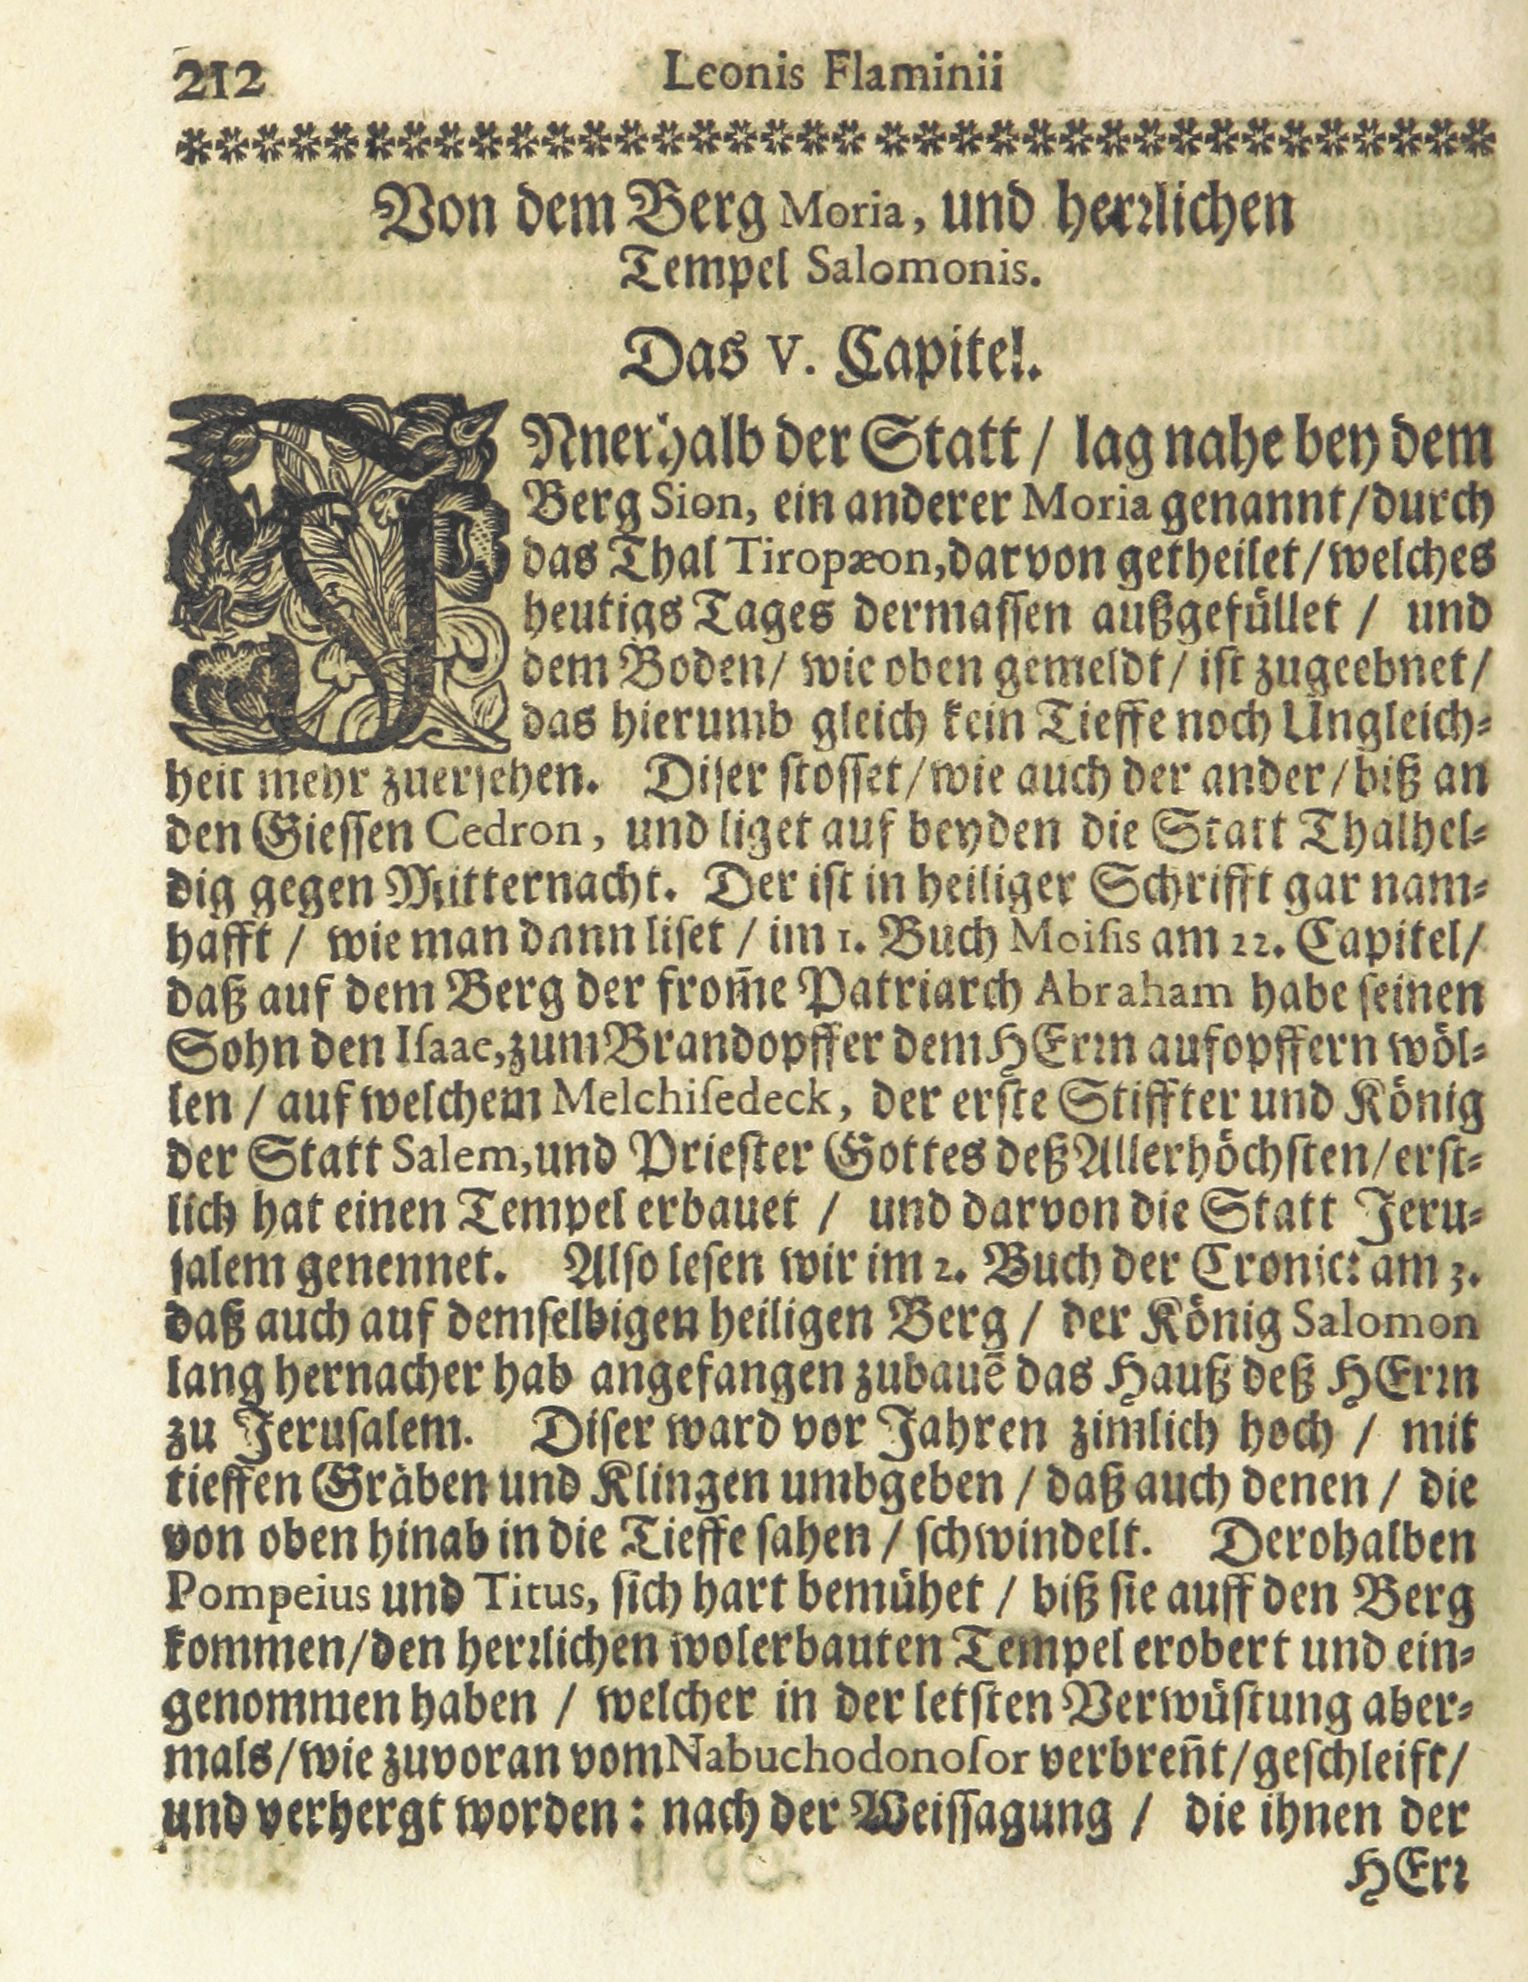 212 Leonis Flaminii
Von dem Berg Moria, und herꝛlichen
Tempel Salomonis.
Das V. Capitel.
INnerhalb der Statt / lag nahe bey dem
Berg Sion, ein anderer Moria genannt/durch
das Thal Tiropæon,darvon getheilet/welches
heutigs Tages dermassen außgefüllet / und
dem Boden/ wie oben gemeldt/ ist zugeebnet/
das hierumb gleich kein Tieffe noch Ungleich-
heit mehr zuersehen. Diser stosset/wie auch der ander/biß an
den Giessen Cedron, und liget auf beyden die Statt Thalhel-
dig gegen Mitternacht. Der ist in heiliger Schrifft gar nam-
hafft / wie man dann liset / im 1. Buch Moisis am 22. Capitel/
daß auf dem Berg der from̄e Patriarch Abraham habe seinen
Sohn den Isaac,zum Brandopffer dem HErꝛn aufopffern wöl-
len / auf welchem Melchisedeck, der erste Stiffter und König
der Statt Salem,und Priester Gottes deß Allerhöchsten/erst-
lich hat einen Tempel erbauet / und darvon die Statt Jeru-
salem genennet. Also lesen wir im 2. Buch der Cronic: am 3.
daß auch auf demselbigen heiligen Berg / der König Salomon
lang hernacher hab angefangen zubauē das Hauß deß HErꝛn
zu Jerusalem. Diser ward vor Jahren zimlich hoch / mit
tieffen Gräben und Klingen umbgeben / daß auch denen / die
von oben hinab in die Tieffe sahen / schwindelt. Derohalben
Pompeius und Titus, sich hart bemühet / biß sie auff den Berg
kommen/den herꝛlichen wolerbauten Tempel erobert und ein-
genommen haben / welcher in der letsten Verwüstung aber-
mals/wie zuvoran vom Nabuchodonosor verbren̄t/geschleift/
und verhergt worden : nach der Weissagung / die ihnen der
HErꝛ